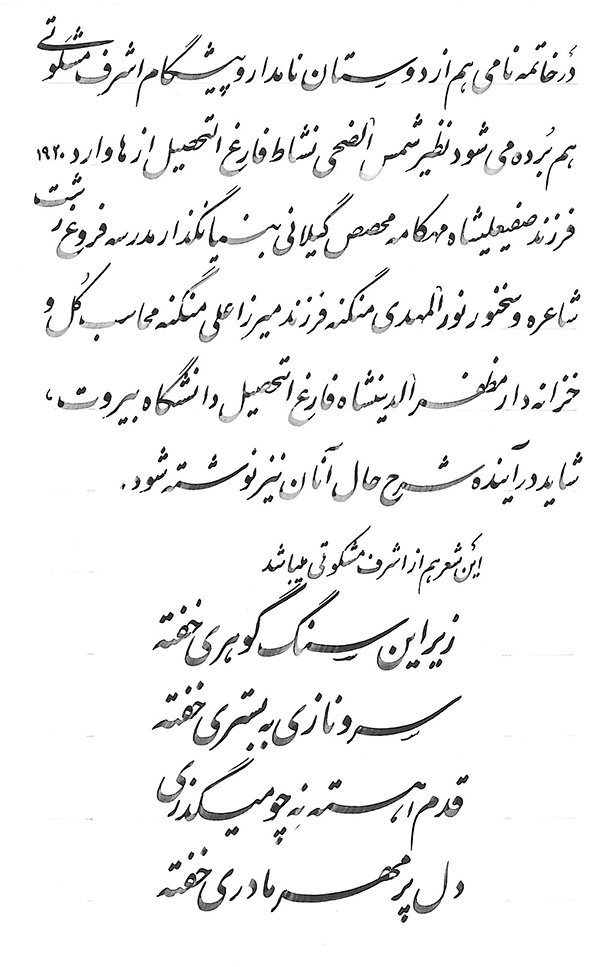 در خاتمه نامی هم از دوستان نامدار و پیشگام اشرف مشکوتی
هم بُرده می شود نظیر شمس الضحی نشاط فارغ التحصیل از هاوارد ۱۹۲۰
فرزند صفیعلیشاه مهکامه محصص گیلانی بنیانگذار مدرسه فروغ رشت
شاعره و سخنور نورالمهدی منگنه فرزند میرزا علی منگنه محاسب کُل و
خزانه دار مظفرالدینشاه فارغ التحصیل دانشگاه بیروت،
شاید در آینده شرح حال آنان نیز نوشته شود.
این شعر هم از اشرف مشکوتی میباشد
زیر این سنگ گوهری خفته
سرو نازی به بستری خفته
قدم آهسته نِه چو میگذری
دل پر مهر مادری خفته